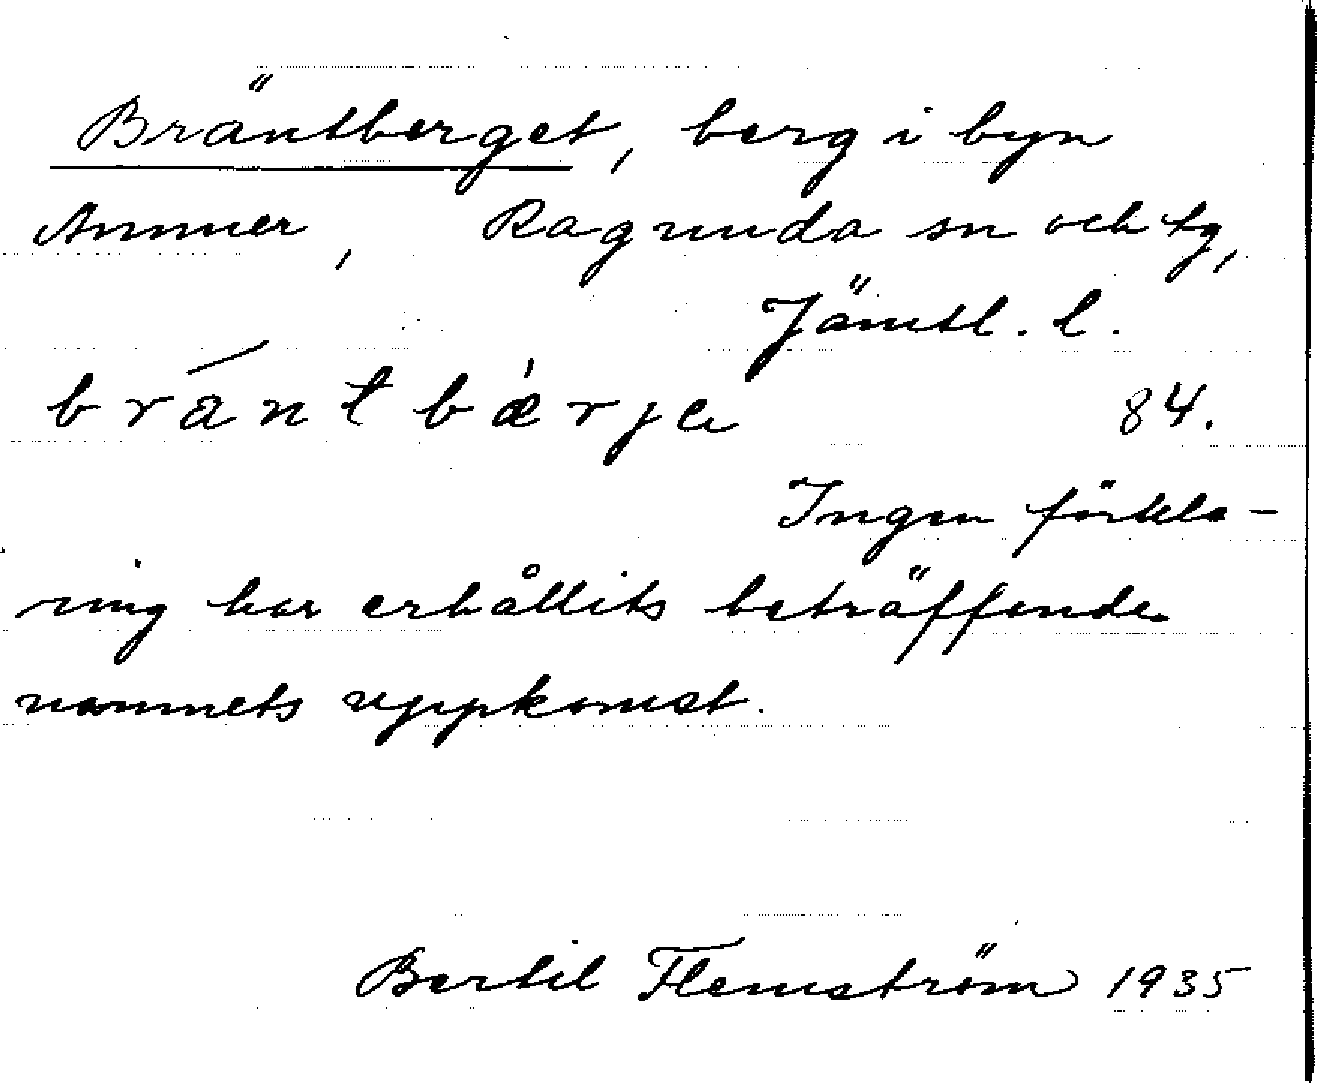 Bräntberget, berg i byn
Ammer, Ragunda sn och tg,
Jämtl. l.
bránt bǽrje 84.
Ingen förkla-
ring har erhållits beträffande
namnets uppkomst.
Bertil Flemström 1935